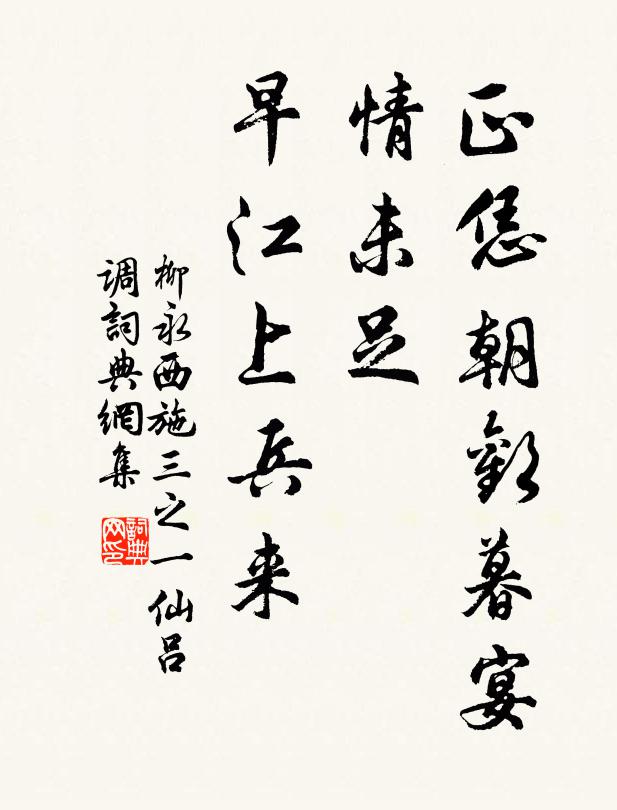 正恁朝歡暮宴
情未足
早江上兵来
柳永西施三之一仙吕
调詞典網集
詞典
网印